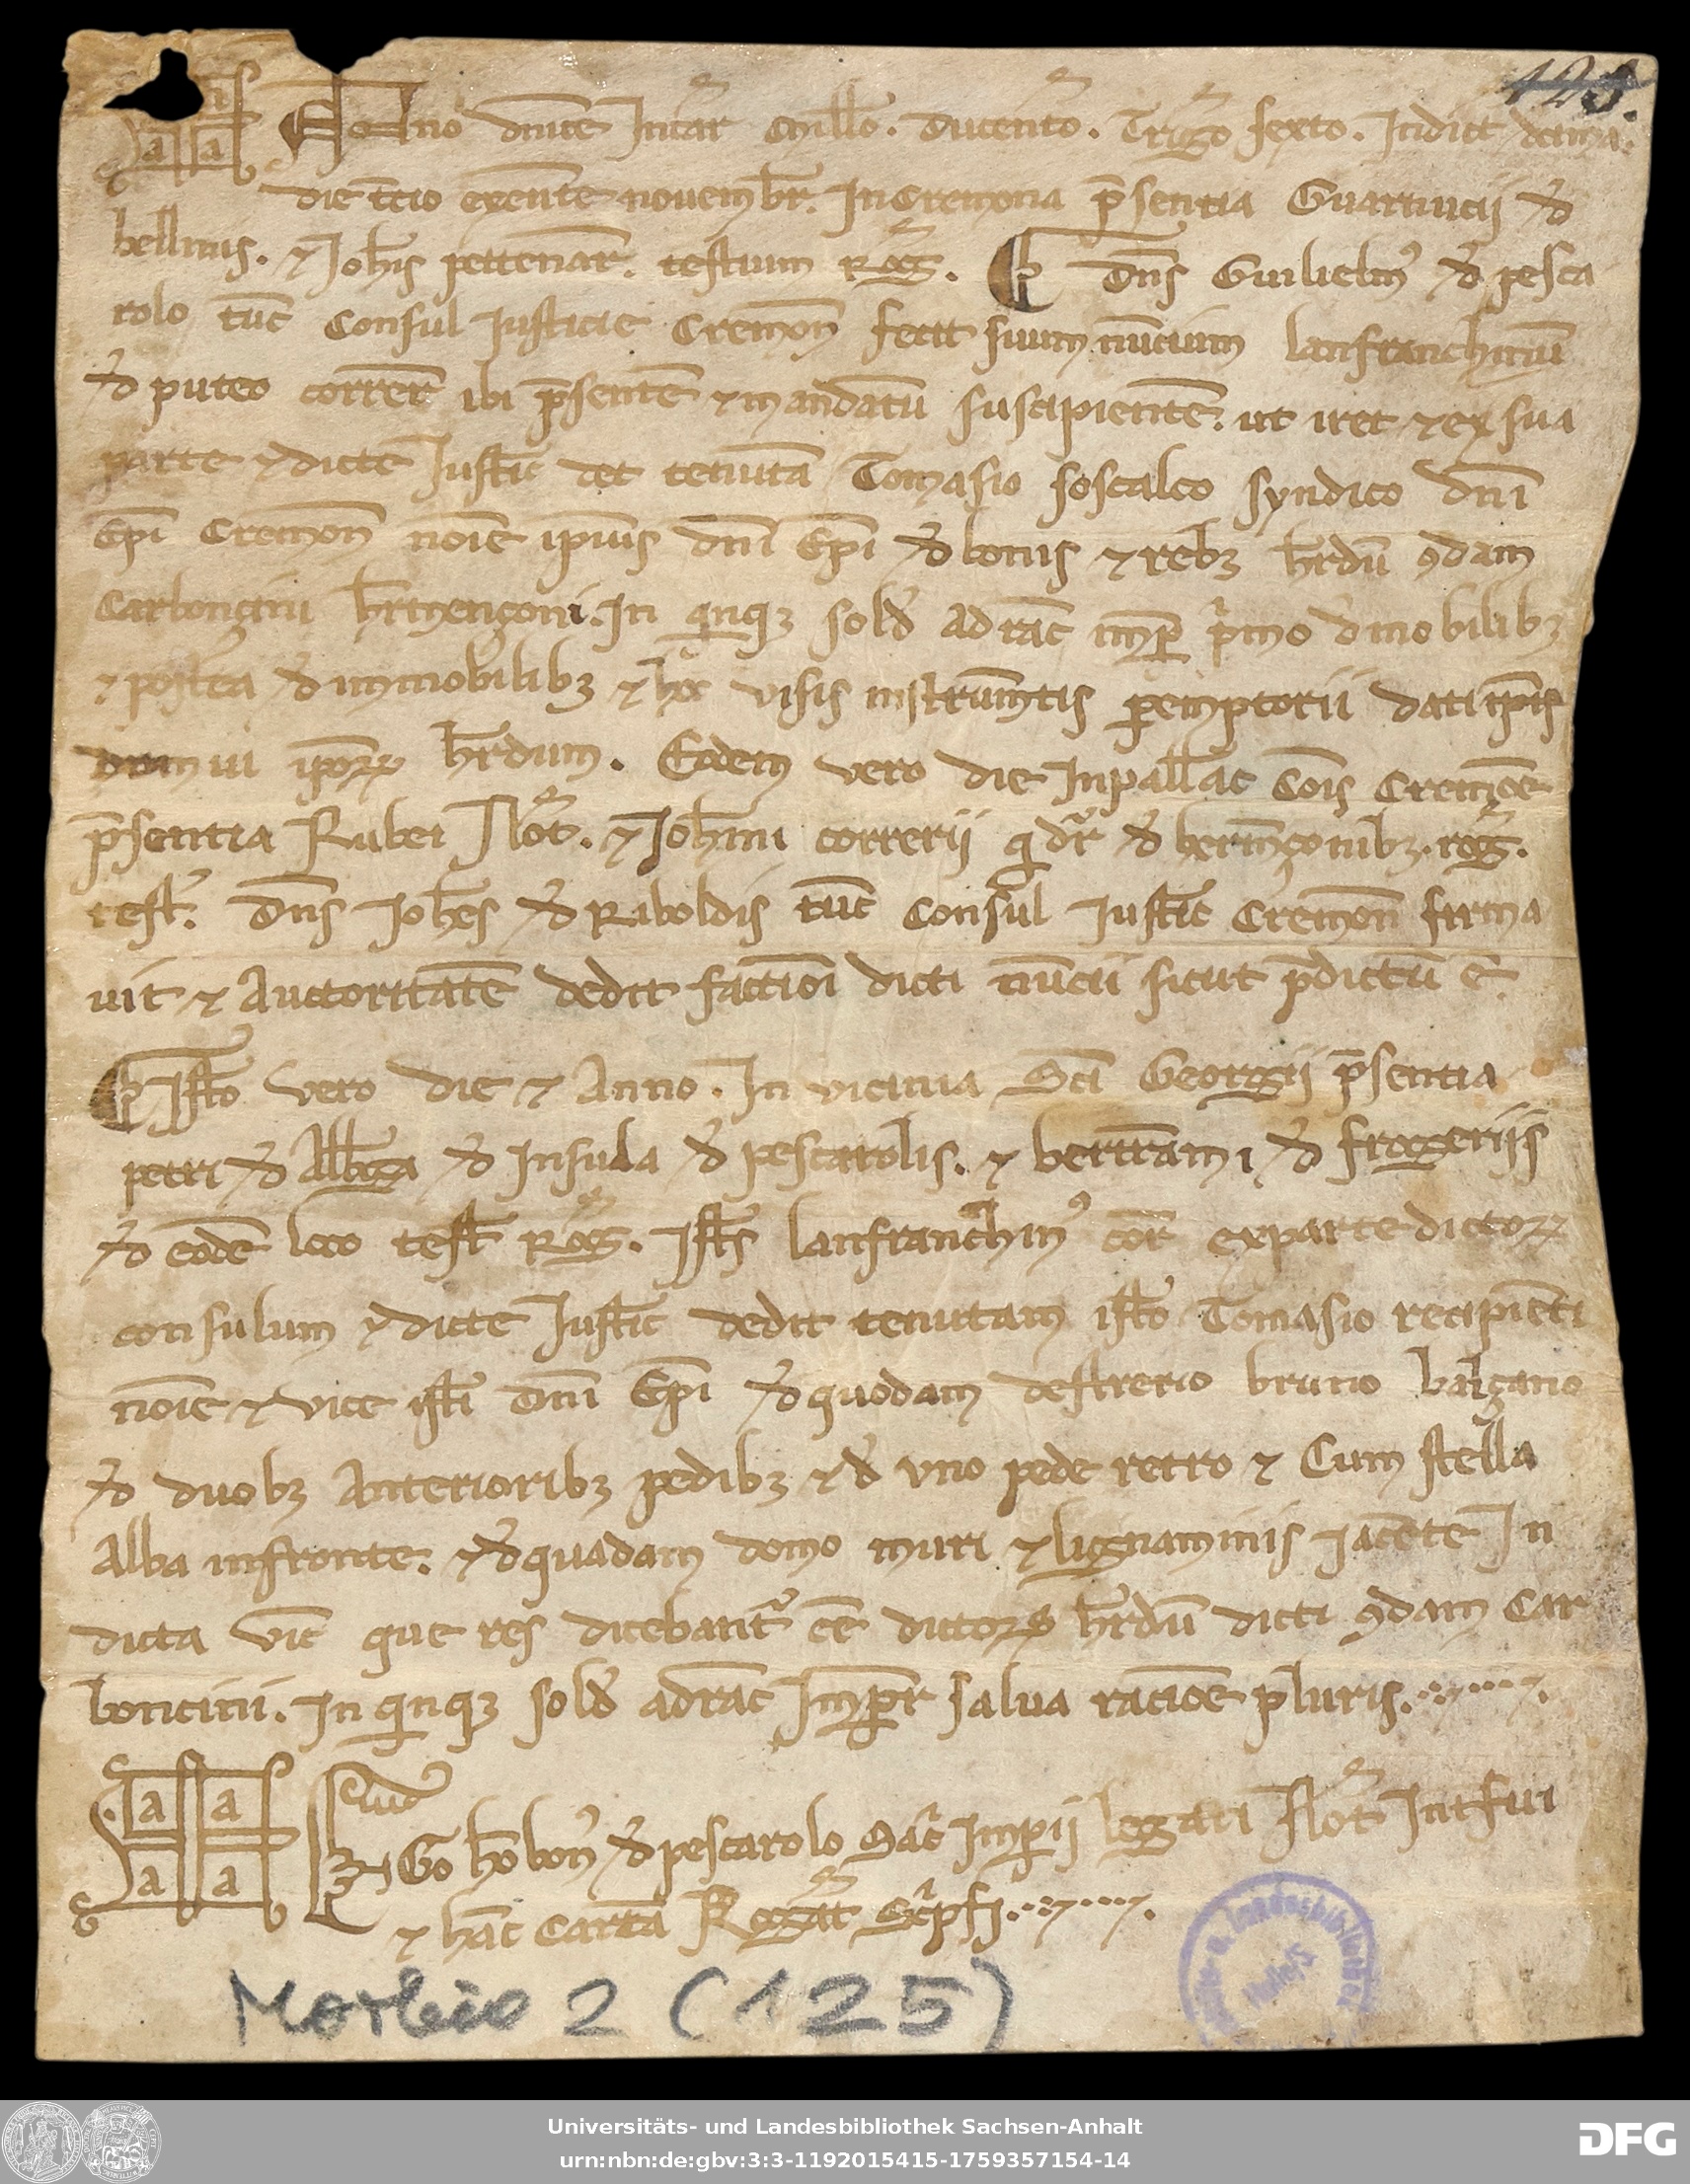 125.
Anno dnice Incar millo. Ducento. Trigo sexto. Indict decima.
die tcio exeunte nouembr. In Cremona psentia Guartucij de
bellinis. ⁊ Johis pettenar. testium Rog. Dns Guilielm᾿ de pesca
rolo tuc Consul Iusticie Cremon fecit suum nuncium lanfranchinu
de puteo correr ibi psente ⁊ mandatu suscipiente. ut iret ⁊ ex sua
parte ⁊ dicte Iustic det tenuta Tomasio soscalco syndico dni
Epi Cremon noie ipius dni Epi de bonis ⁊ rebȝ hrdu ꝯdam
Carboncini hrmençoni. In qnqȝ sold ad rac imp pmo de mobilibȝ
⁊ postea de immobilibȝ ⁊ hoc visis instrumtis pemptorii dati ipis
domui ipoꝝ hrdum. Eodem vero die In pallac Cois Cremone
psentia Rubei Not. ⁊ Johini correrij q dr de bermçonibȝ. rog.
test. Dns Johes de Riboldis tuc Consul Iustic Cremon firma
uit ⁊ Auctoritate dedit factioi dicti nucii sicut pdictu e.
Isto vero die ⁊ Anno. In vicinia Sci Georgij psentia
petri de Albga de Insula de pescarolis. ⁊ bertrami de frogeriis
de eode loco test Rog. Ists lanfranchin᾿ cor ex parte dictoꝝ
consulum ⁊ dicte Iustic dedit tenutam isto Tomasio recipienti
noie ⁊ vice isti dni Epi de quodam destrerio bruno balçano
de duobȝ Anterioribȝ pedibȝ ⁊ de vno pede retro ⁊ Cum stella
Alba in fronte. ⁊ de quadam domo muri ⁊ lignaminis Iacente In
dicta vic que res dicebant ee dictoꝝ hrdu dicti ꝯdam Car
boncini. In qnqȝ sold ad rac Imper salua racioe pluris.
Ego hobon de pescarolo Sac Imperij legati Not Interfui
⁊ hac carta Rogat Scpsi.
Morbio 2 (125)
Universitäts- und Landesbibliothek Sachsen-Anhalt
urn:nbn:de:gbv:3:3-1192015415-1759357154-14
DFG